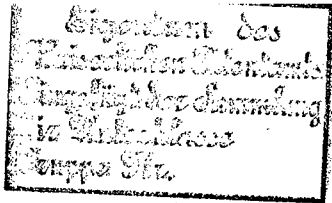 Eigentum des
Kaiserlichen Patentamts
Eingefügt der Sammlung
für Unterklasse
Gruppe Nr.